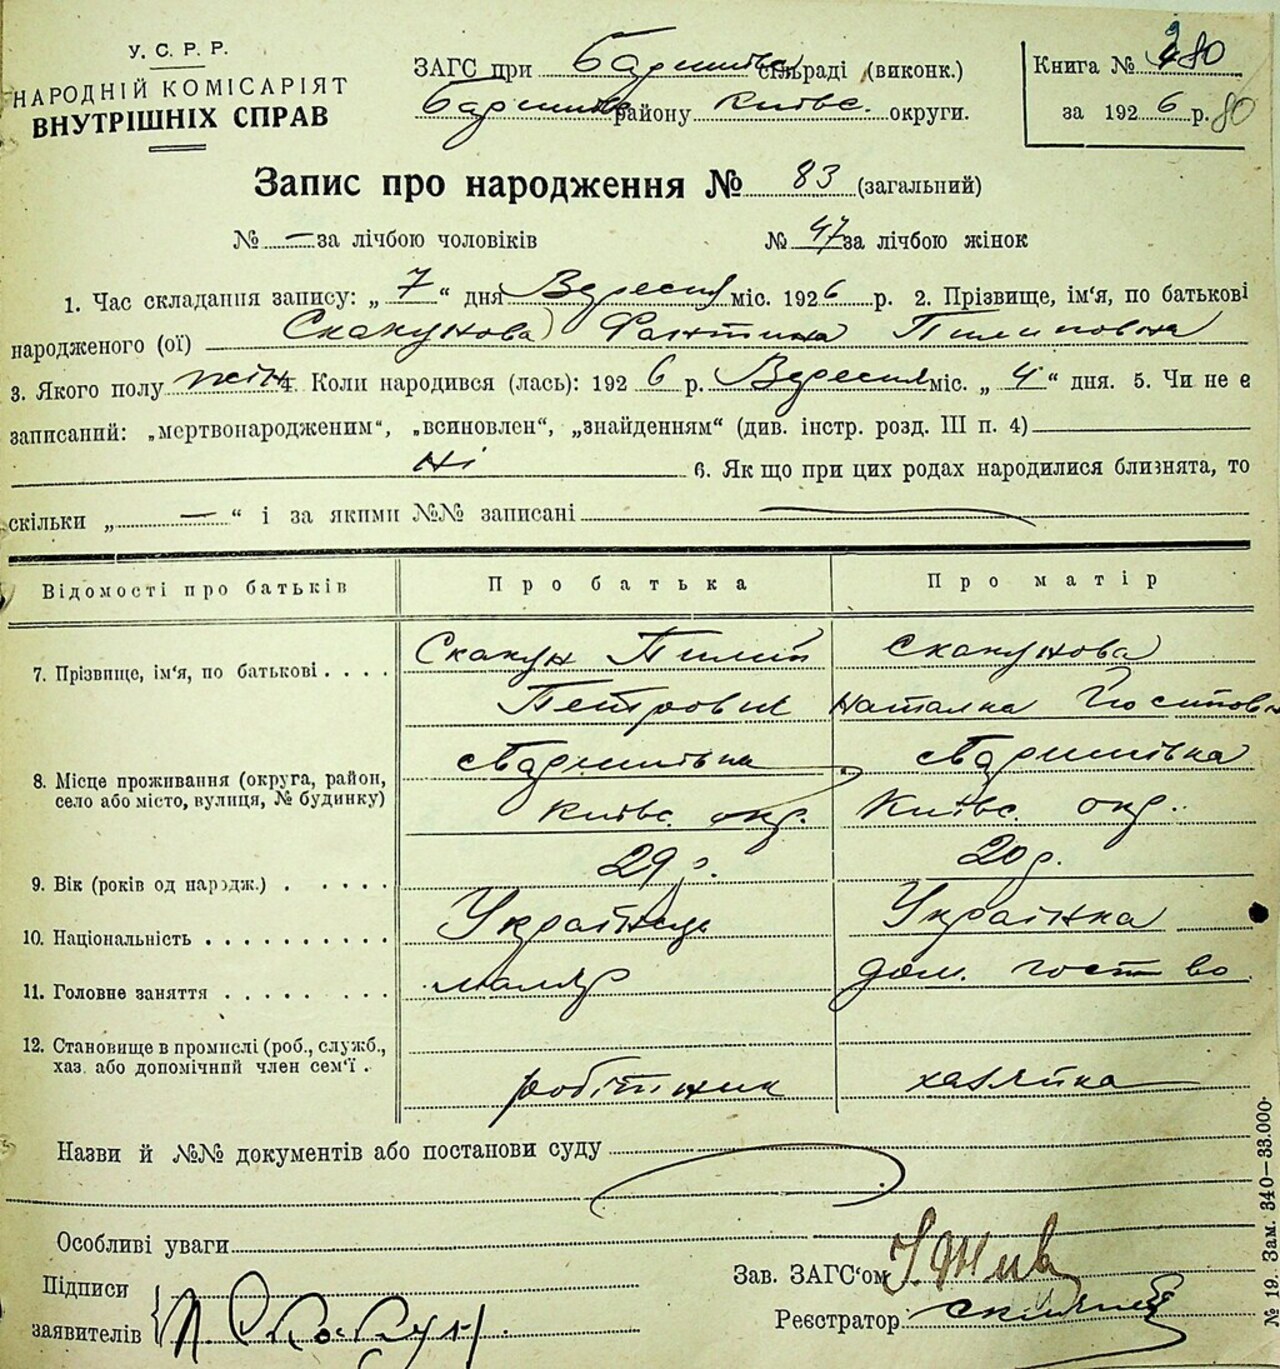 У. С. Р. Р.
НАРОДНІЙ КОМІСАРІЯТ
ВНУТРІШНІХ СПРАВ
ЗАГС при Баришівс сільраді (виконк.)
Баришівс району Київс. округи.
Книга № 280
за 1926 р. 80
Запис про народження № 83 (загальний)
№ — за лічбою чоловіків № 47 за лічбою жінок
1. Час складання запису: „ 7 “ дня Вересня міс. 1926 р. 2. Прізвище, ім'я, по батькові
народженого (ої) Скакунова Фантина Пилиповна
3. Якого полу жін 4. Коли народився (лась): 1926 р. Вересня міс. „ 4 “ дня. 5. Чи не є
записаний: „мертвонародженим“, „всиновлен“, „знайденням“ (див. інстр. розд. III п. 4)
ні 6. Як що при цих родах народилися близнята, то
скільки „ — “ і за якими №№ записані
Відомості про батьків Про батька Про матір
7. Прізвище, ім'я, по батькові . . . . Скакун Пилип Скакунова
Петрович Наталка Йосиповна
8. Місце проживання (округа, район, с Баришівка с Баришівка
село або місто, вулиця, № будинку) Київс. окр. Київс. окр.
9. Вік (років од народж.) . . . . . 29 р. 20 р.
10. Національність . . . . . . . . . . Українець Українка
11. Головне заняття . . . . . . . . маляр дом. госп-во
12. Становище в промислі (роб., служб.,
хаз. або допомічний член сем'ї . робітник хазяйка
Назви й №№ документів або постанови суду
Особливі уваги
Підписи
заявителів П. Скакун.
Зав. ЗАГС'ом
Реєстратор:
№ 19. Зам. 340—33.000.